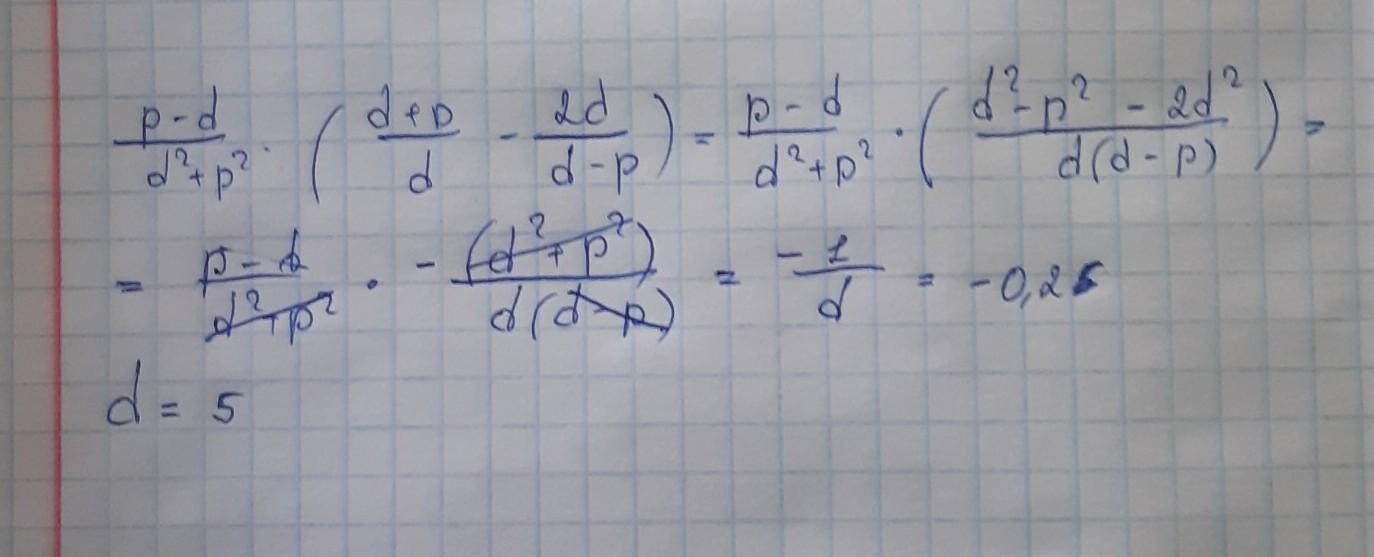 (p-d)/(d²+p²) · ((d+p)/d - 2d/(d-p)) = (p-d)/(d²+p²) · ((d²-p²-2d²)/(d(d-p))) =
= (p-d)/(d²+p²) · -(d²+p²)/(d(d-p)) = -1/d = -0,2
d = 5